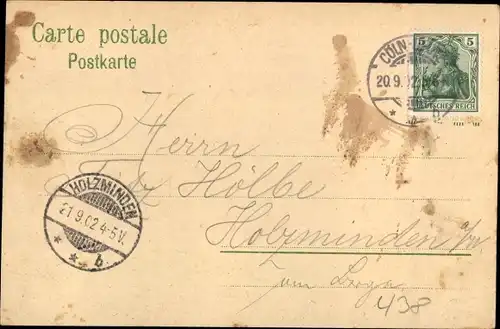 Carte postale
Postkarte
CÖLN
20.9.02
5 5
DEUTSCHES REICH
Herrn
Fritz Hölbe
HOLZMINDEN
21.9.02 4-5V.
* * b
Holzminden a/w
438